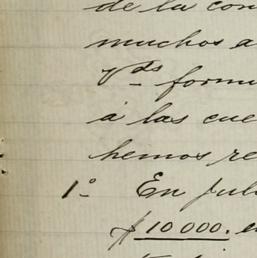 de la con
muchos a
Vds formu
á las cue
hemos re
1º En Julio
$10 000. e